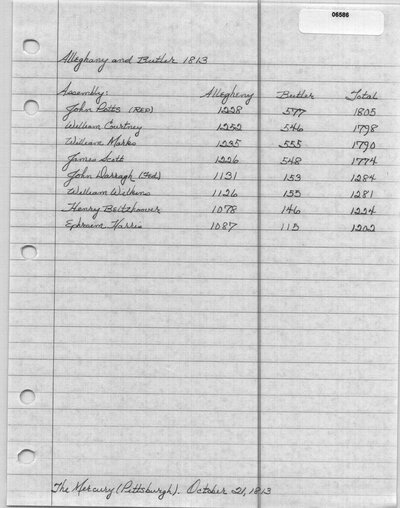 06586
Alleghany and Butler 1813
Assembly: Allegheny Butler Total
John Potts (REP) 1228 577 1805
William Courtney 1252 546 1798
William Marks 1235 555 1790
James Scott 1226 548 1774
John Darragh (Fed) 1131 153 1284
William Wilkens 1126 155 1281
Henry Beltzhoover 1078 146 1224
Ephraim Harris 1087 115 1202
The Mercury (Pittsburgh). October 21, 1813